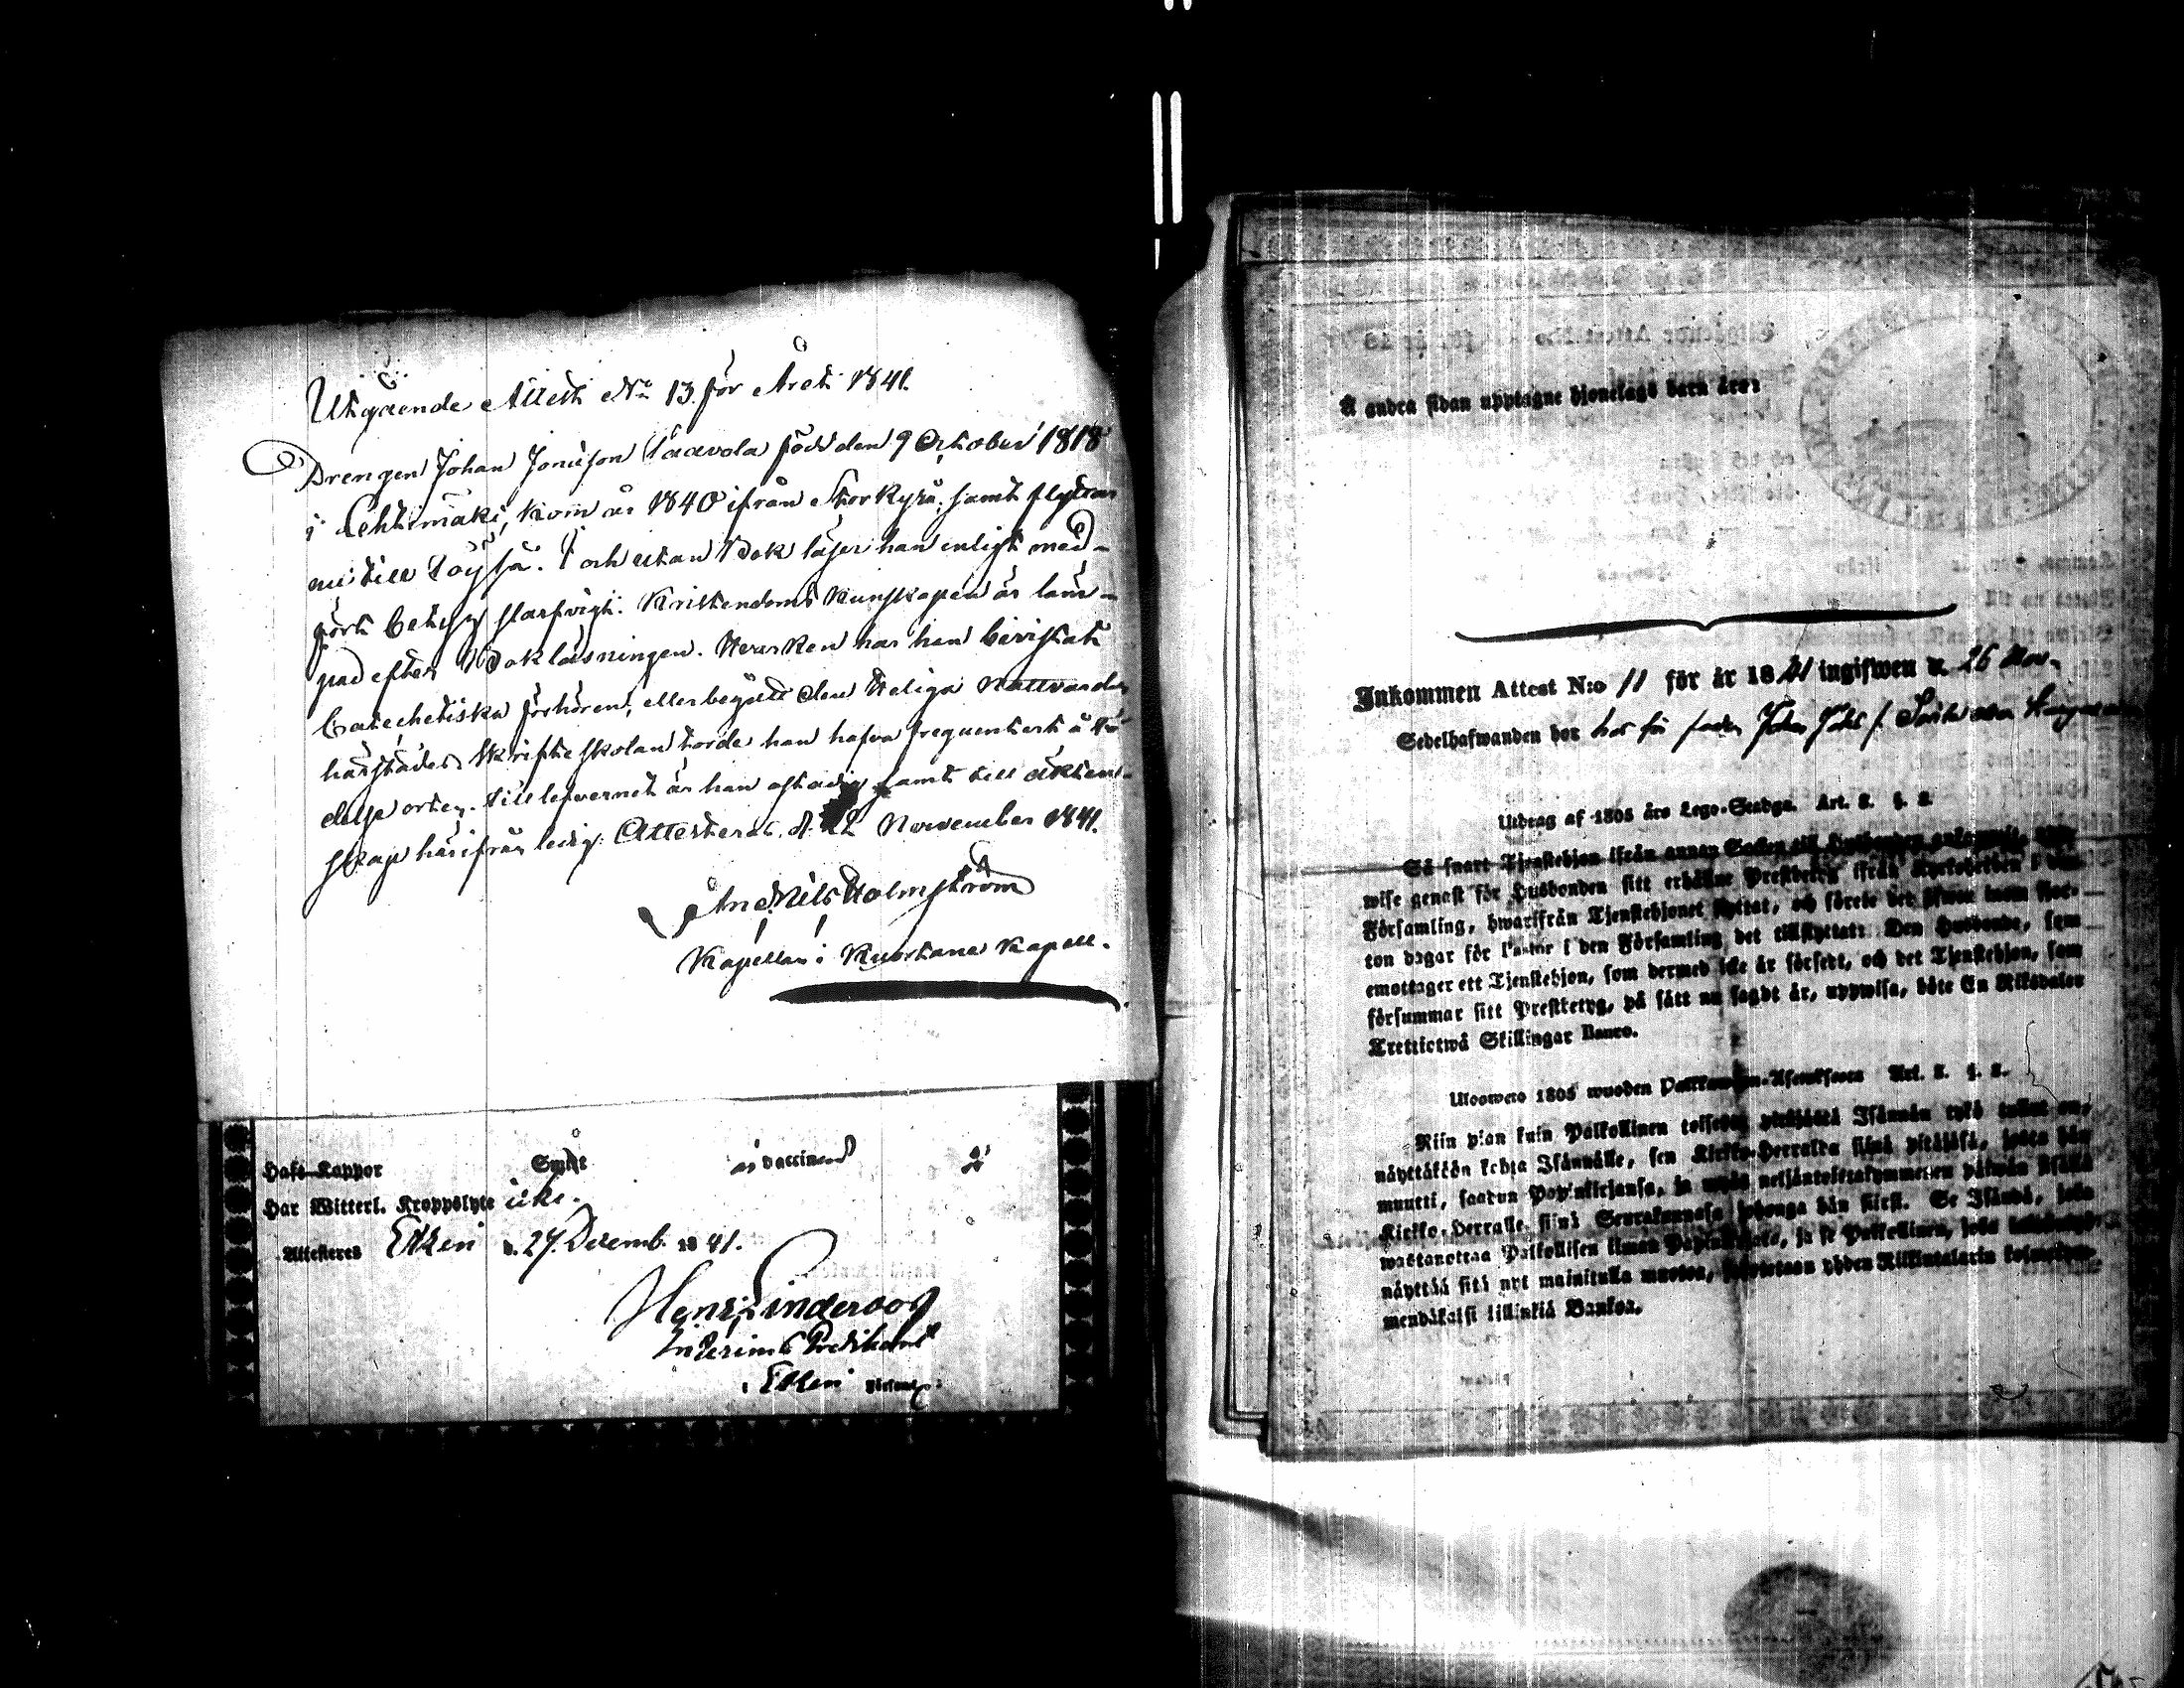 Utgående Attest No 13. för Året 1841.
Drengen Johan Jonasson Saavola född den 9 October 1818
i Lehtimäki, kom år 1840 ifrån Storkyrå, samt flyttar
nu till Töysä. I och utan Bok läser han enligt med-
fördt betyg slarfvigt. Kristendoms kunskapen är läm-
pad efter Bokläsningen. Hvarken har han bevistat
Catechetiska förhören, eller begått den Heliga Nattvarden
härstädes. Skriftskolan torde han hafva frequenterat å fö-
delse orten. Till lefvernet är han samt till ächten-
skap härifrån ledig. Attesterat d. 22 November 1841.
And. Nils Holmström
Kapellan i Kuortane Kapell.
Haft Koppor Smitt är vaccinerad
Har Witterl. Kroppslyte icke.
Attesteres Etseri d. 27. Decemb. 18 41.
Henr. Linderoos
Interims Predikant
i Etseri Församl.
Å andra sidan upptagne hjonelags barn äro:
Inkommen Attest N:o 11 för år 18 41 ingifwen d. 26 Nov.
Sedelhafwanden bor hos sin fader
Utdrag af 1805 års Lego-Stadga. Art. 2. §. 2.
Så snart Tjenstehjon ifrån annan Socken till Husbonden ankommit,
wise genast för Husbonden sitt erhållne Prestbetyg ifrån Kyrkoherden i den
Församling, hwarifrån Tjenstehjonet flyttat, och förete det sedan inom fjor-
ton dagar för Pastor i den Församling det tillflyttat: Den Husbonde, som
emottager ett Tjenstehjon, som dermed icke är försedt, och det Tjenstehjon, som
försummar sitt Prestbetyg, på sätt nu sagdt är, uppwisa, böte En Riksdaler
Trettiotwå Skillingar Banco.
Ulosweto 1805 wuoden Palkkawäen-Asetuksesta Art. 2. §. 2.
Niin pian kuin Palkollinen toisesta pitäjästä Isännän tykö tullut on,
näyttäköön kohta Isännälle, sen Kirkko-Herralda siinä pitäjäsä, josta hän
muutti, saadun Papinkirjansa, ja neljäntoistakymmenen päiwän sisällä
Kirkko-Herralle siinä Seurakunnasa johonga hän siirsi. Se Isändä, joka
wastanottaa Palkollisen ilman Papinkirjata, ja se Palkollinen, joka
näyttää sitä nyt mainitulla muotoa, yhden Riikintalarin kolme-
mendäkaksi killinkiä Bankoa.